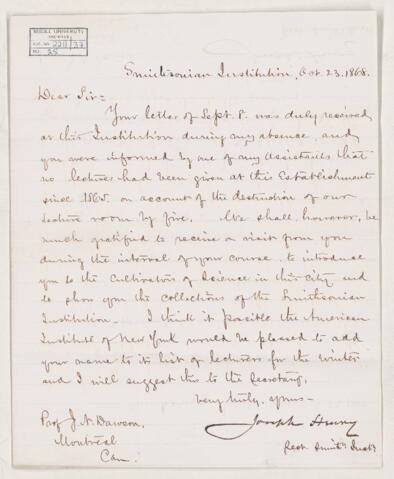 McGILL UNIVERSITY
ARCHIVES
ACC. NO. 2211 / 37
Smithsonian Institution, Oct. 23, 1868.
Dear Sir:
Your letter of Sept. 8. was duly received
at this Institution during my absence, and
you were informed by one of my assistants that
no lectures had been given at this Establishment
since 1865, on account of the destruction of our
lecture room by fire. We shall, however, be
much gratified to receive a visit from you
during the interval of your course, to introduce
you to the Cultivators of Science in this City and
to show you the collections of the Smithsonian
Institution. I think it possible the American
Institute of New York would be pleased to add
your name to its list of lecturers for the winter
and I will suggest this to the Secretary.
Very truly, yours—
Prof J. W. Dawson, Joseph Henry
Montreal
Can. Smithn Instn